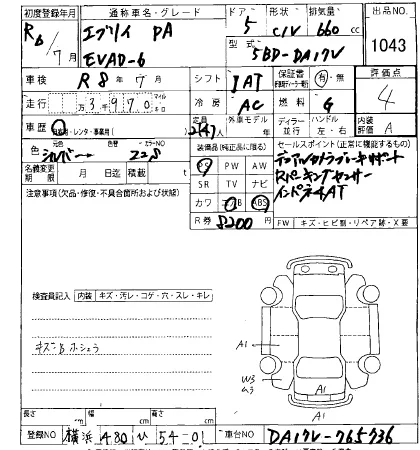 初度登録年月 通称車名・グレード ドア 形状 排気量 出品NO
R6 / 7月 エブリイ PA 5 C/V 660 cc 1043
EVAD-6 型式 5BD-DA17V
車検 R 8年 7月 シフト IAT 保証書 有・無 評価点
走行 3,970 冷房 AC 燃料 G 4
車歴 定員 外車モデル 年 ディーラー 並行 ハンドル 左・右 内装評価 A
色 シルバー 色替 カラーNO Z2S 装備品(純正品に限る) セールスポイント(正常に機能するもの)
名義変更期限 月 日迄 積載 t PS PW AW デュアルカメラブレーキサポート
SR TV ナビ Rパーキングセンサー
注意事項(欠品・修復・不具合箇所および状態) カワ エアB ABS インパネ4AT
R券 8200円 FW キズ・ヒビ割・リペア跡・X要
検査員記入 内装 キズ・汚レ・コゲ・穴・スレ・キレ
キズ・B ホシュウ
A1 A1
W3 ムラ A1
長さ cm 幅 cm 高さ cm
登録NO 横浜 480 ひ 54-01 車台NO DA17V-765736